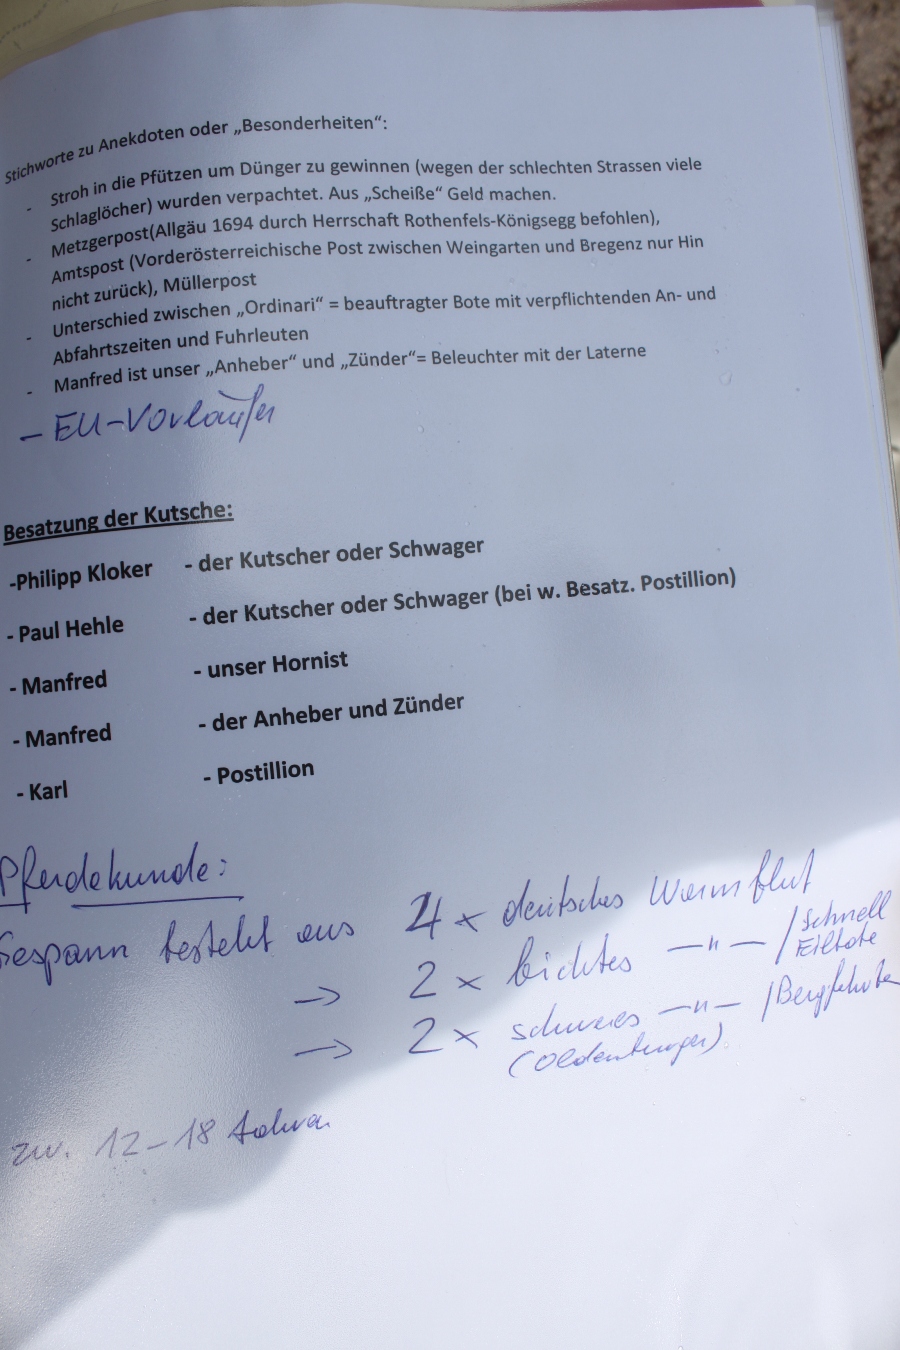 Stichworte zu Anekdoten oder „Besonderheiten“:
- Stroh in die Pfützen um Dünger zu gewinnen (wegen der schlechten Strassen viele
Schlaglöcher) wurden verpachtet. Aus „Scheiße“ Geld machen.
- Metzgerpost(Allgäu 1694 durch Herrschaft Rothenfels-Königsegg befohlen),
Amtspost (Vorderösterreichische Post zwischen Weingarten und Bregenz nur Hin
nicht zurück), Müllerpost
- Unterschied zwischen „Ordinari“ = beauftragter Bote mit verpflichtenden An- und
Abfahrtszeiten und Fuhrleuten
- Manfred ist unser „Anheber“ und „Zünder“= Beleuchter mit der Laterne
- EU-Vorläufer
Besatzung der Kutsche:
-Philipp Kloker - der Kutscher oder Schwager
- Paul Hehle - der Kutscher oder Schwager (bei w. Besatz. Postillion)
- Manfred - unser Hornist
- Manfred - der Anheber und Zünder
- Karl - Postillion
Pferdekunde:
Gespann besteht aus 4 x deutsches Warmblut
→ 2 x leichtes —"— / Schnell
Eilbote
→ 2 x schweres —"— / Bergfahrten
(Oldenburger)
zw. 12-18 Jahren